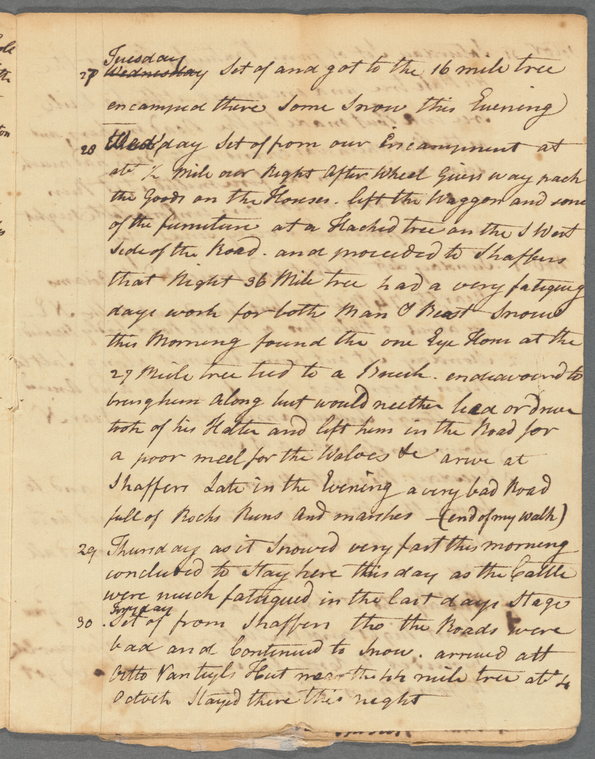 Tuesday
27 Wednesday Set of and got to the 16 mile tree
encamped there Some Snow this Evening
28 Wed'day Set of from our Encampment at
abt ½ mile our Right After Wheel Gives way pack
the Goods on the Horses. left the Waggon and some
of the furniture at a Hacked tree on the S West
Side of the Road. and proceeded to Shaffers
that Night 36 Mile tree had a very fatigueing
days work for both Man & Beast Snow
this Morning found the one Eye Horse at the
27 Mile tree tied to a Beech. endeavoured to
bring him along but would neither lead or drive
took of his Halter and left him in the Road for
a poor meel for the Wolves &c arive at
Shaffers Late in the Evening a very bad Road
full of Rocks Runs and marshes - (end of my walk)
29 Thursday as it Snowed very fast this morneng
concluded to Stay here this day as the Cattle
were much fatigued in the last days Stage
fryday
30. Set of from Shaffers tho the Roads were
bad and Continued to Snow. arrived att
Otto Vantuyls Hut near the 44 mile tree at 4
Oclock Stayed there this neght